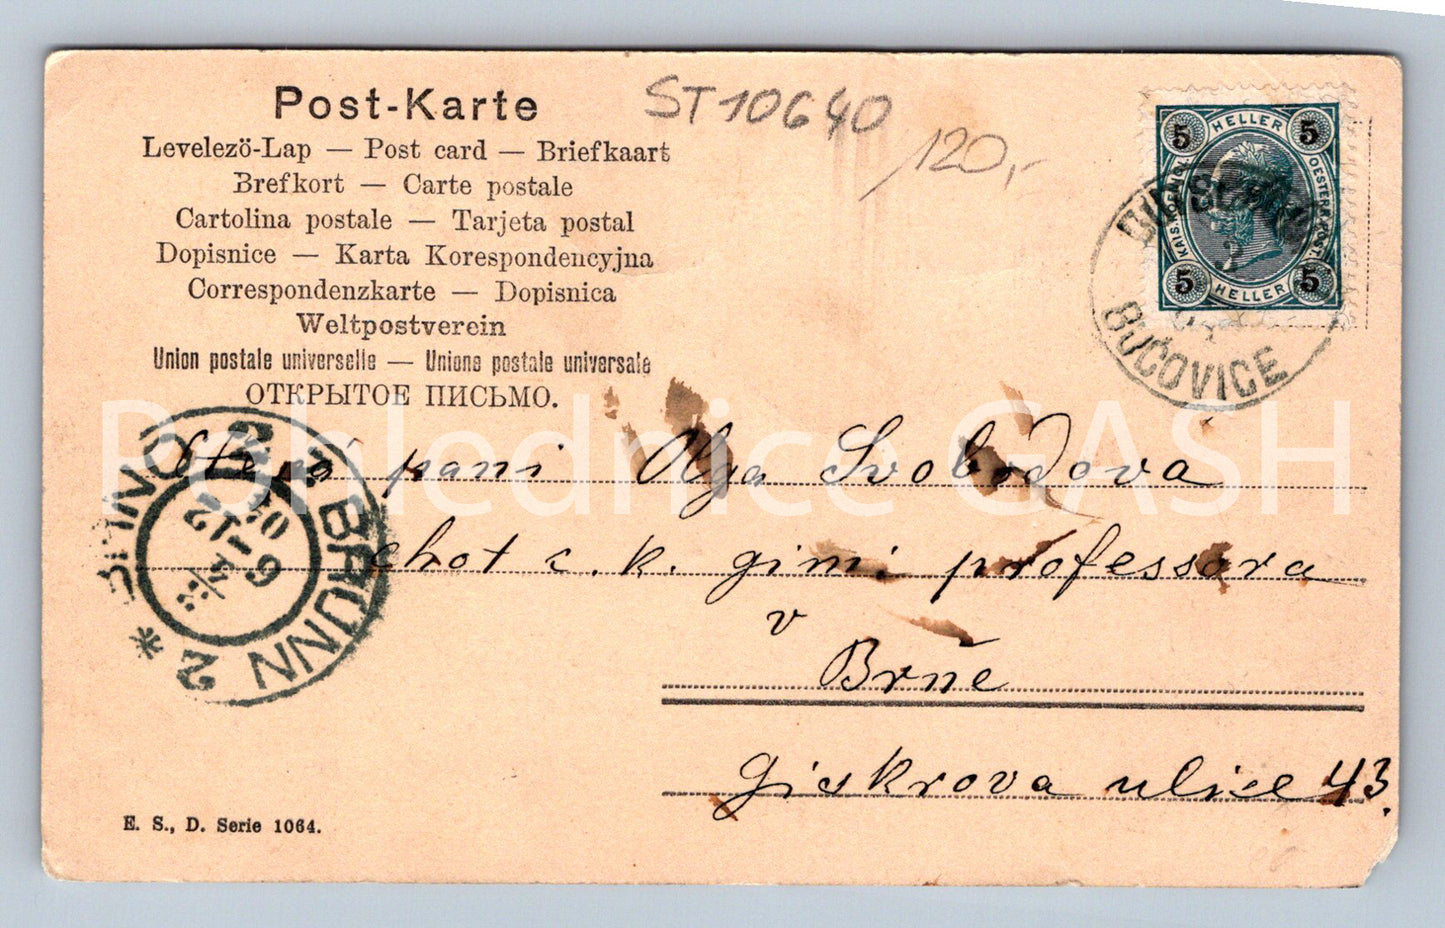 Post-Karte
Levelezö-Lap — Post card — Briefkaart
Brefkort — Carte postale
Cartolina postale — Tarjeta postal
Dopisnice — Karta Korespondencyjna
Correspondenzkarte — Dopisnica
Weltpostverein
Union postale universelle — Unione postale universale
ОТКРЫТОЕ ПИСЬМО.
ST10640
120,-
5 HELLER 5
KAIS. KÖNIGL. OESTERR. POST.
5 HELLER 5
BUČOVICE
Pohlednice GASH
BRÜNN 2 * BRNO 2
paní Olga Svobodova
choť c. k. gimn professora
v
Brně
Giskrova ulice 43.
E. S., D. Serie 1064.